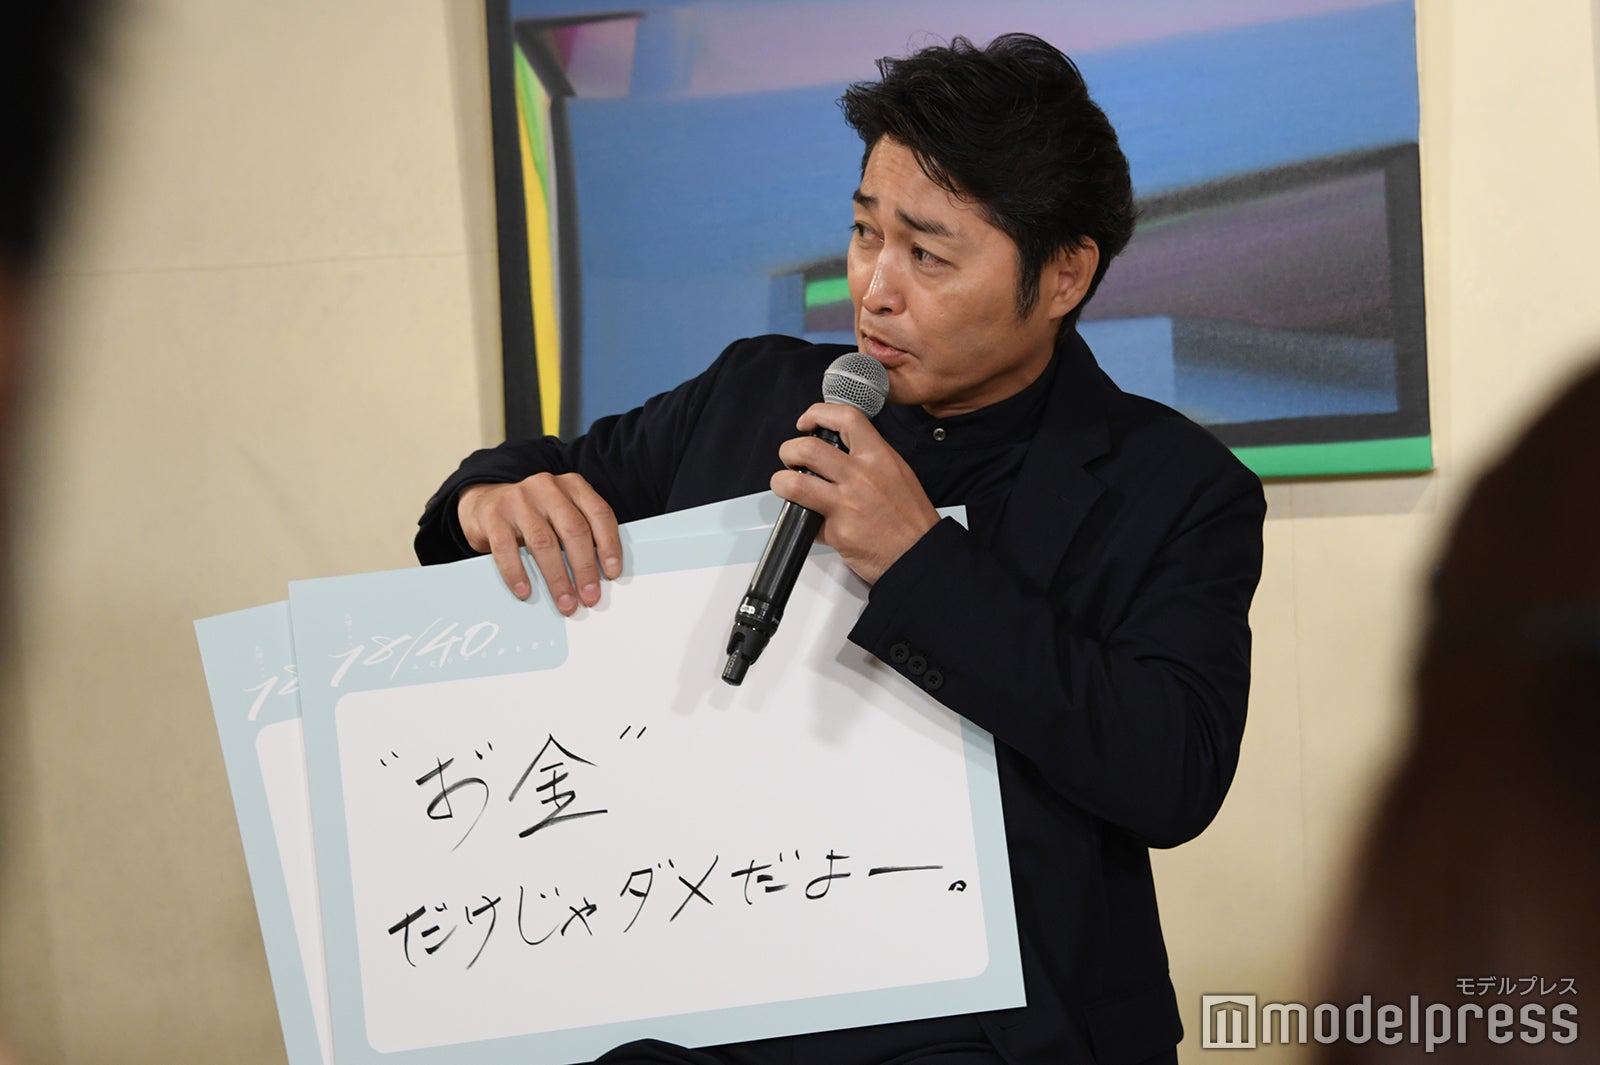 18/40
18
"お金"
だけじゃダメだよー。
モデルプレス
modelpress